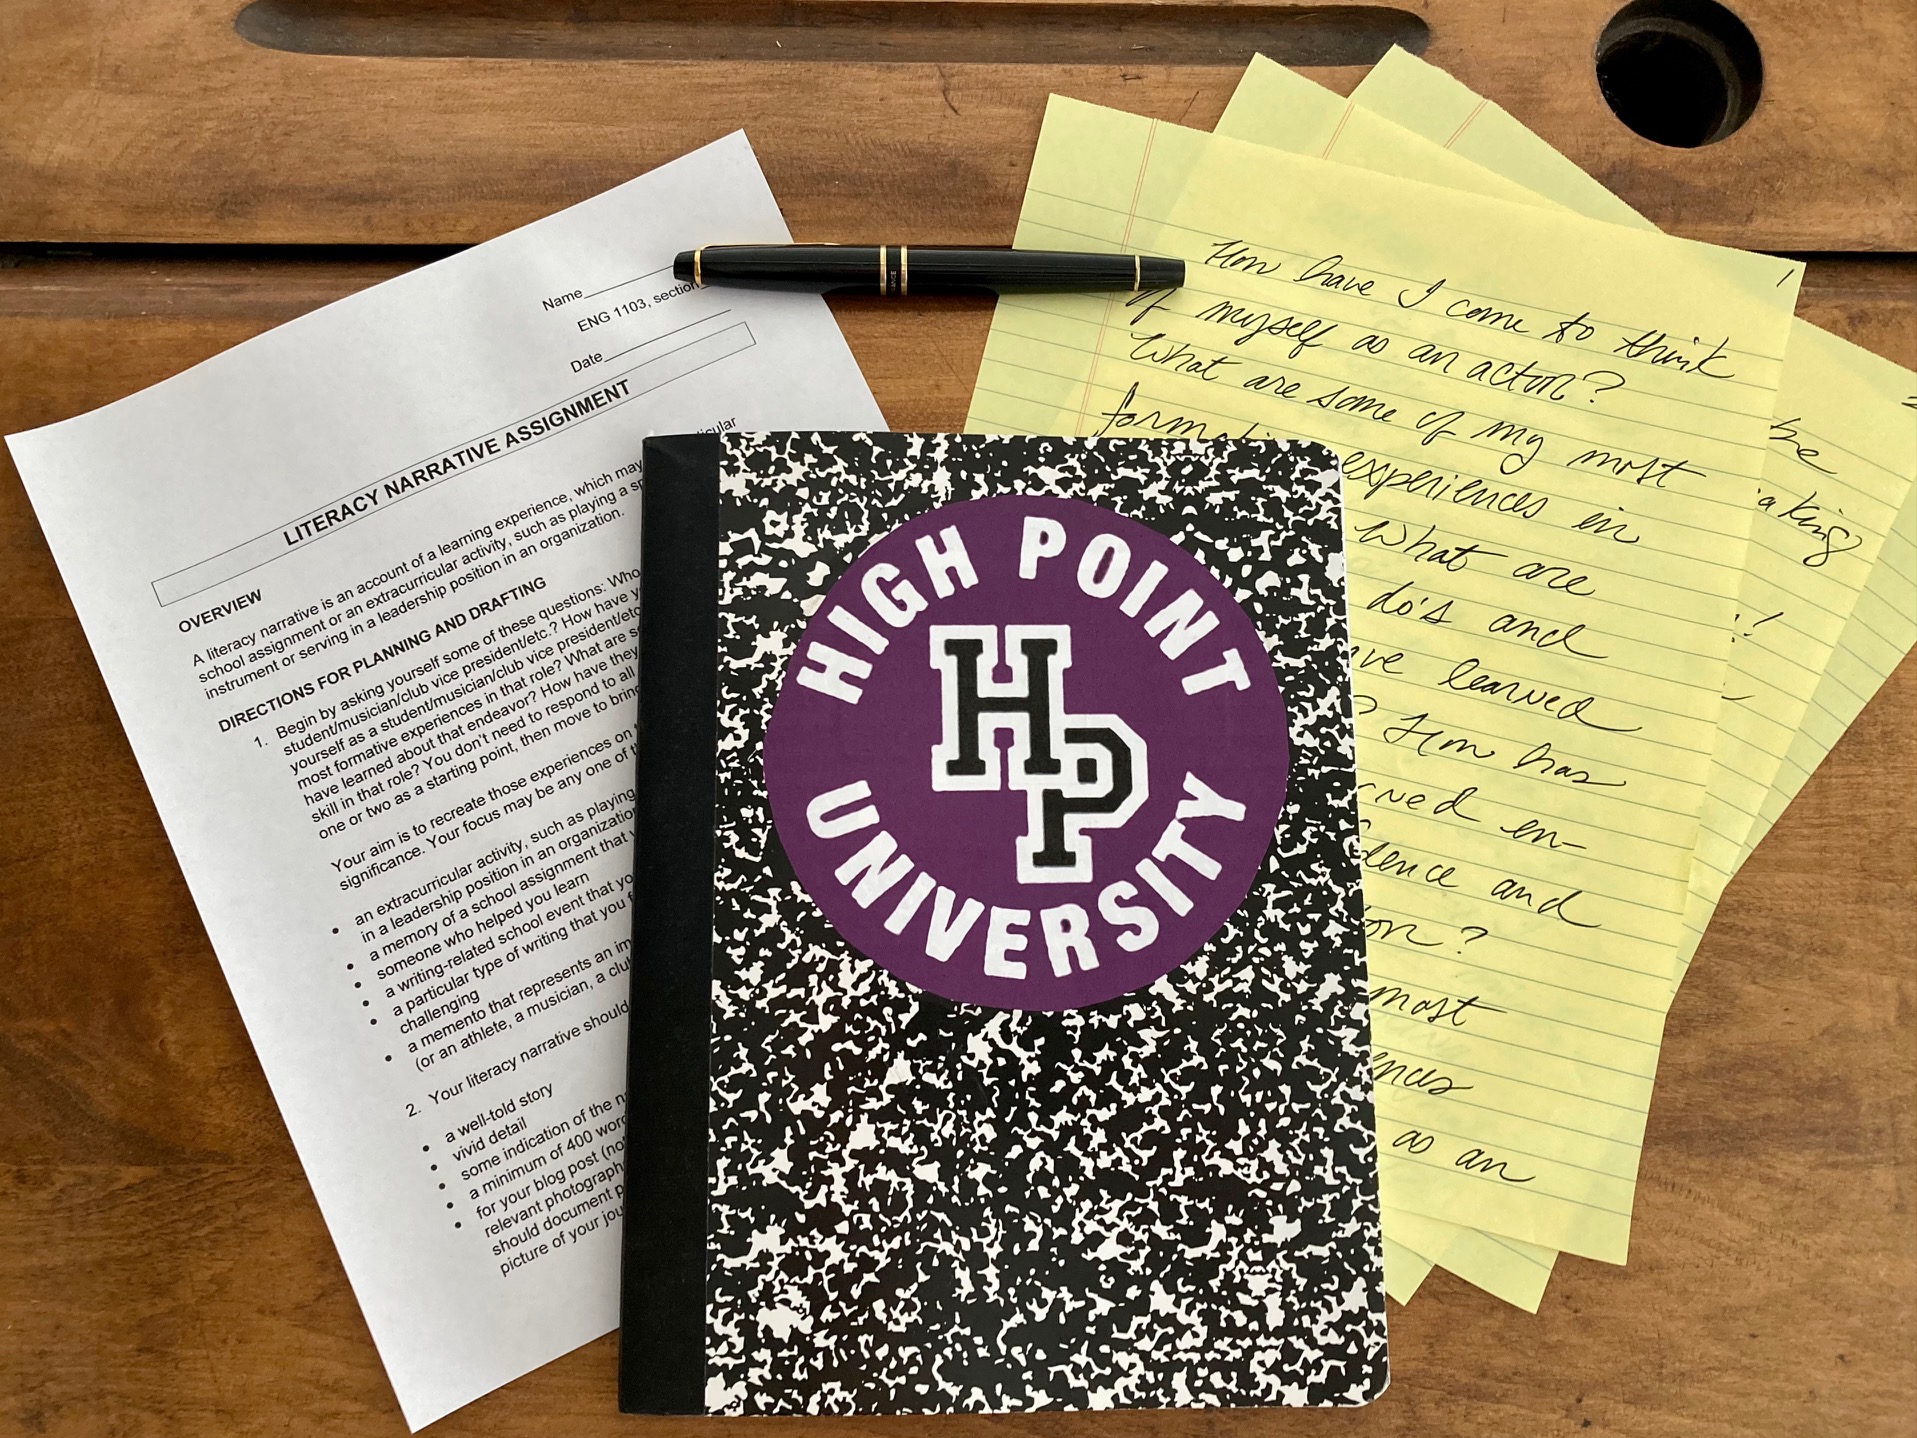 Name
ENG 1103, section
Date
LITERACY NARRATIVE ASSIGNMENT
OVERVIEW
A literacy narrative is an account of a learning experience, which may
school assignment or an extracurricular activity, such as playing a
instrument or serving in a leadership position in an organization.
DIRECTIONS FOR PLANNING AND DRAFTING
1. Begin by asking yourself some of these questions: Who
student/musician/club vice president/etc.? How have
yourself as a student/musician/club vice president/etc
most formative experiences in that role? What are
have learned about that endeavor? How have they
skill in that role? You don't need to respond to all
one or two as a starting point, then move to
Your aim is to recreate those experiences on
significance. Your focus may be any one of
• an extracurricular activity, such as playing
in a leadership position in an organization
• a memory of a school assignment that
someone who helped you learn
• a writing-related school event that
• a particular type of writing that you
challenging
• a memento that represents an
(or an athlete, a musician, a
2. Your literacy narrative should
• a well-told story
• vivid detail
• some indication of the
• a minimum of 400
• for your blog post
relevant
should document
picture of your
HIGH POINT
HP
UNIVERSITY
1
How have I come to think
of myself as an actor?
What are some of my most
experiences in
What are
do's and
learned
? How has
en-
and
?
most
as an
2
be
!